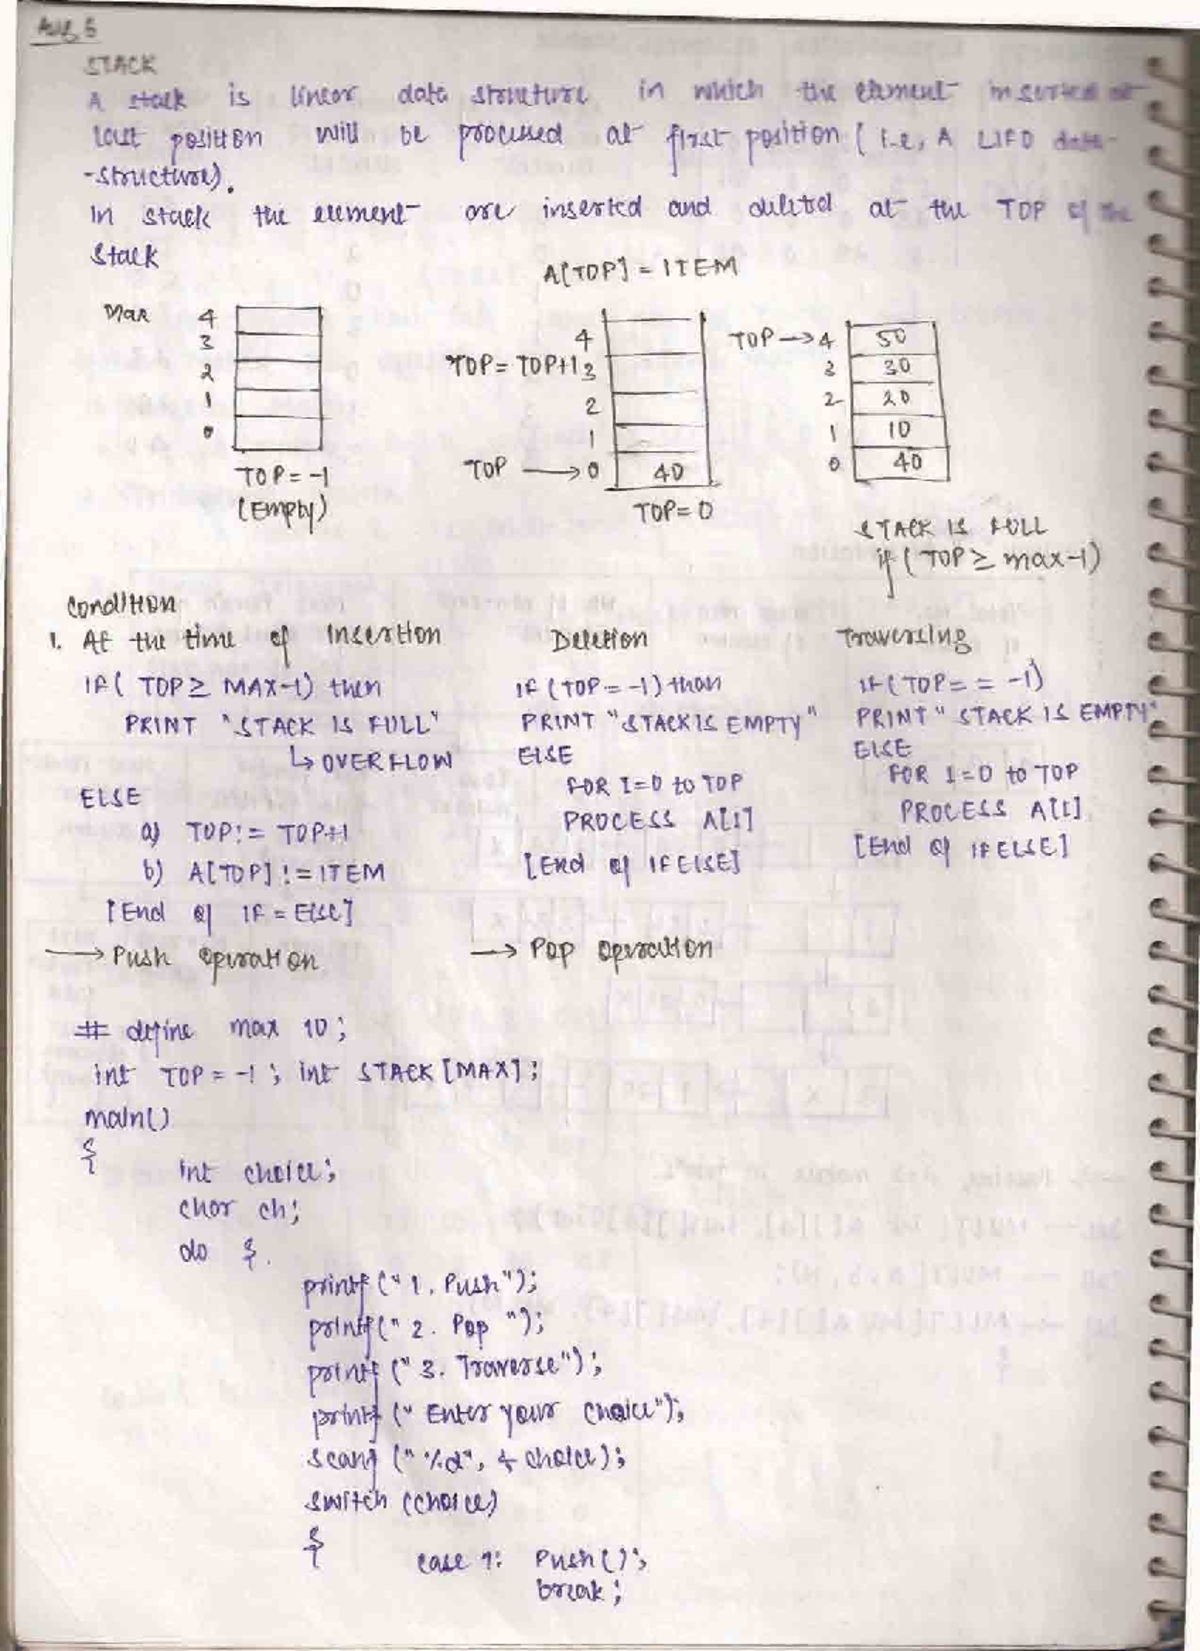 Aug 5
STACK
A stack is linear data structure in which the element inserted at
last position will be processed at first position ( i.e, A LIFO data-
-structure).
In stack the element are inserted and deleted at the TOP of the
Stack
A[TOP] = ITEM
Max 4
3
2
1
0
TOP = -1
(Empty)
4
TOP = TOP+1 3
2
1
TOP → 0 40
TOP = 0
TOP → 4 50
3 30
2 20
1 10
0 40
STACK IS FULL
if ( TOP ≥ max-1)
Condition
1. At the time of Insertion
IF( TOP ≥ MAX-1) then
PRINT "STACK IS FULL"
↳ OVERFLOW
ELSE
a) TOP != TOP+1
b) A[TOP] != ITEM
[End of IF = Else]
→ Push operation
Deletion
IF (TOP = -1) than
PRINT "STACK IS EMPTY"
ELSE
FOR I=0 to TOP
PROCESS A[I]
[End of IF ELSE]
→ Pop operation
Traversing
IF (TOP = = -1)
PRINT " STACK IS EMPTY"
ELSE
FOR I=0 to TOP
PROCESS A[I]
[End of IF ELSE]
# define max 10 ;
int TOP = -1 ; int STACK [MAX] ;
main()
{
int choice;
char ch;
do {
printf (" 1. Push");
printf (" 2. Pop ");
printf (" 3. Traverse");
printf (" Enter your choice");
scanf (" %d", & choice);
switch (choice)
{
case 1: Push();
break;